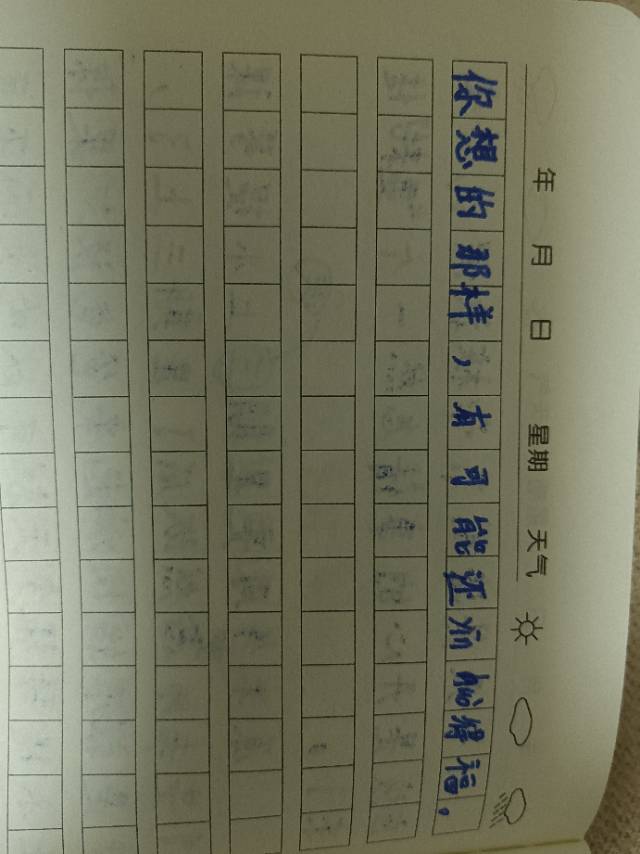 年 月 日 星期 天气
你想的那样，有可能还得福。